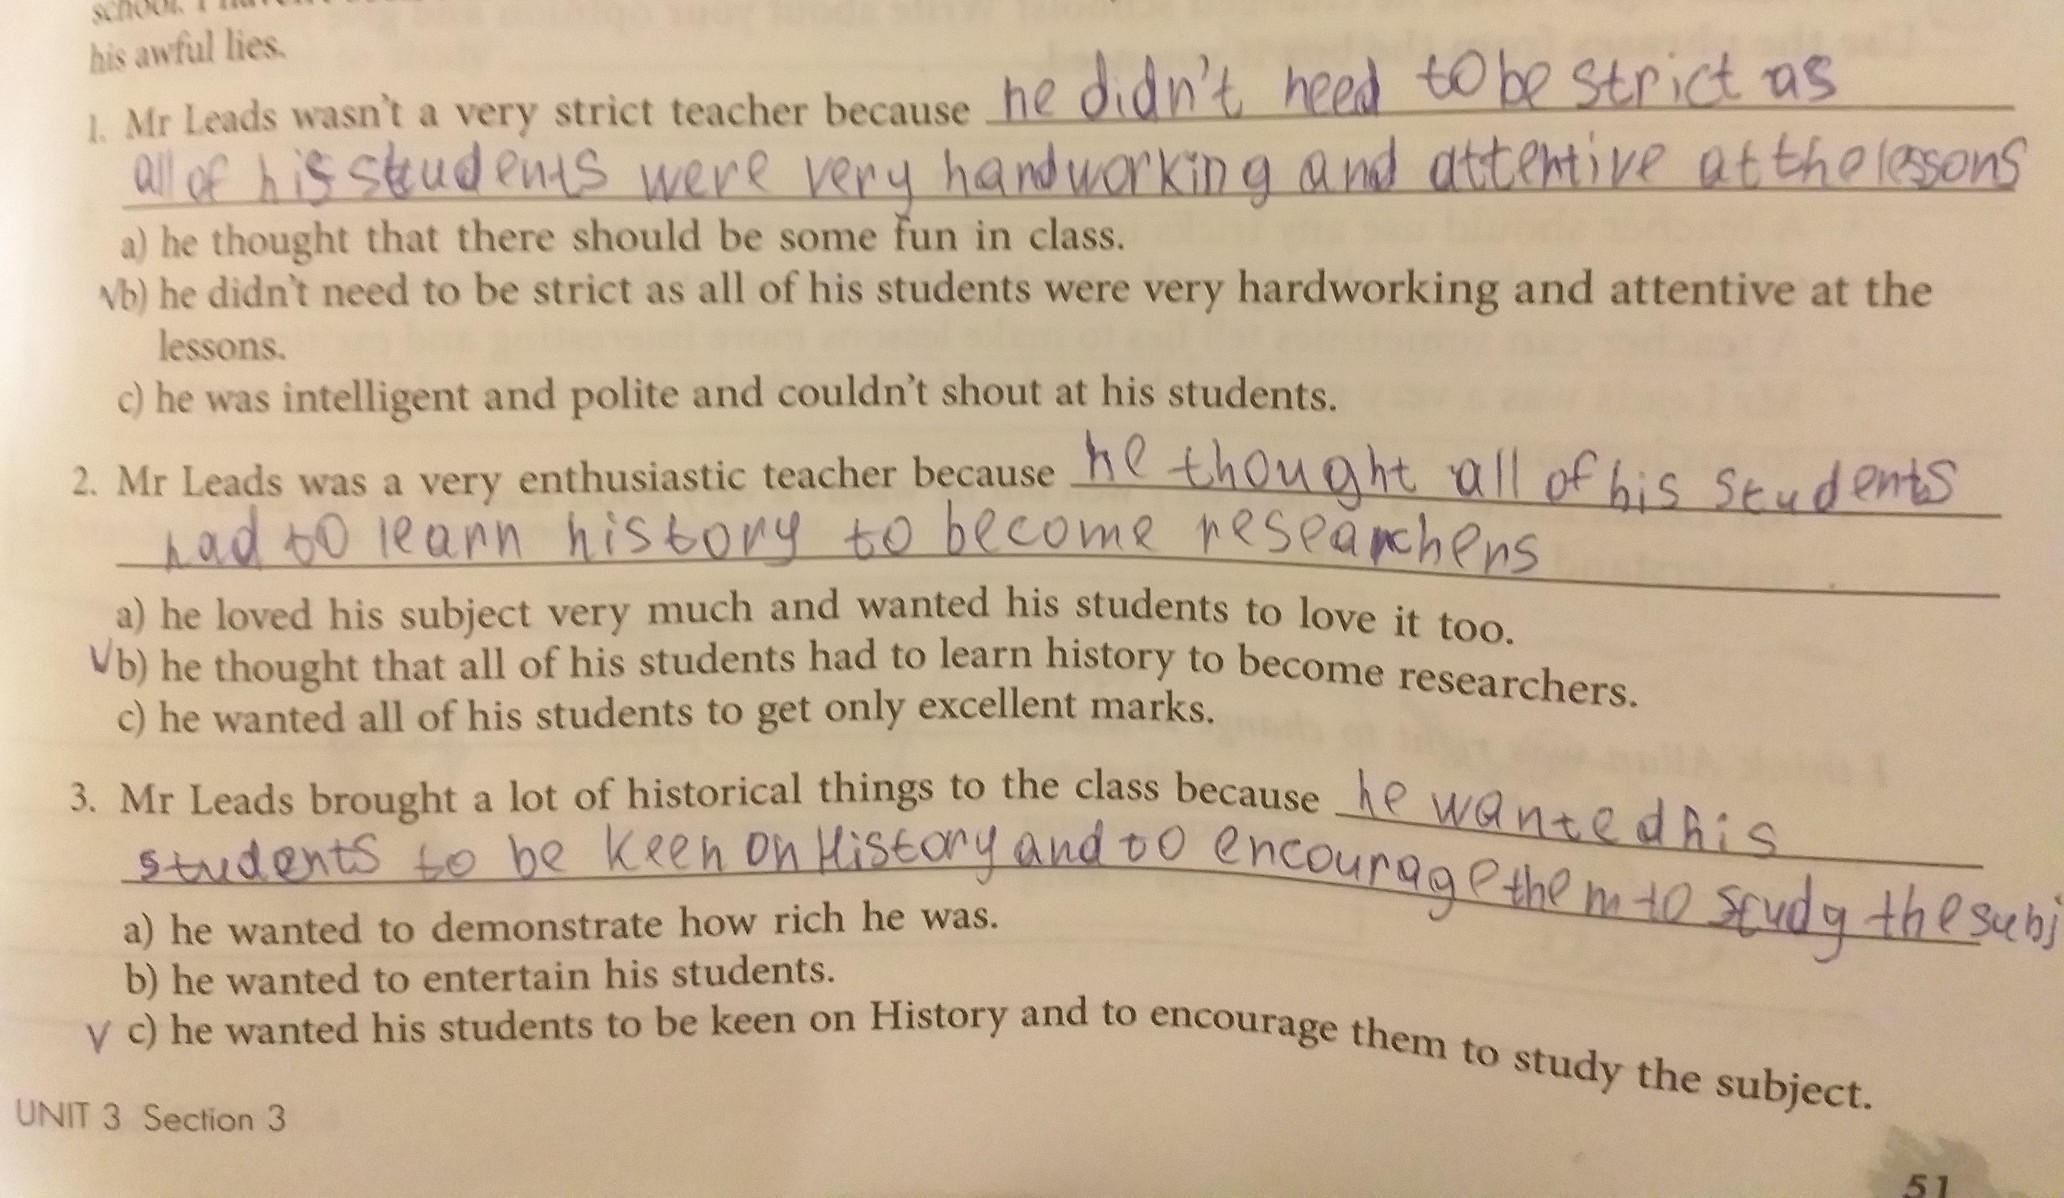 his awful lies.
1. Mr Leads wasn't a very strict teacher because he didn't need to be strict as
all of his students were very handworking and attentive at the lessons
a) he thought that there should be some fun in class.
√b) he didn't need to be strict as all of his students were very hardworking and attentive at the
lessons.
c) he was intelligent and polite and couldn't shout at his students.
2. Mr Leads was a very enthusiastic teacher because he thought all of his students
had to learn history to become researchers
a) he loved his subject very much and wanted his students to love it too.
√b) he thought that all of his students had to learn history to become researchers.
c) he wanted all of his students to get only excellent marks.
3. Mr Leads brought a lot of historical things to the class because he wanted his
students to be keen on History and to encourage them to study the subj
a) he wanted to demonstrate how rich he was.
b) he wanted to entertain his students.
V c) he wanted his students to be keen on History and to encourage them to study the subject.
UNIT 3 Section 3
51